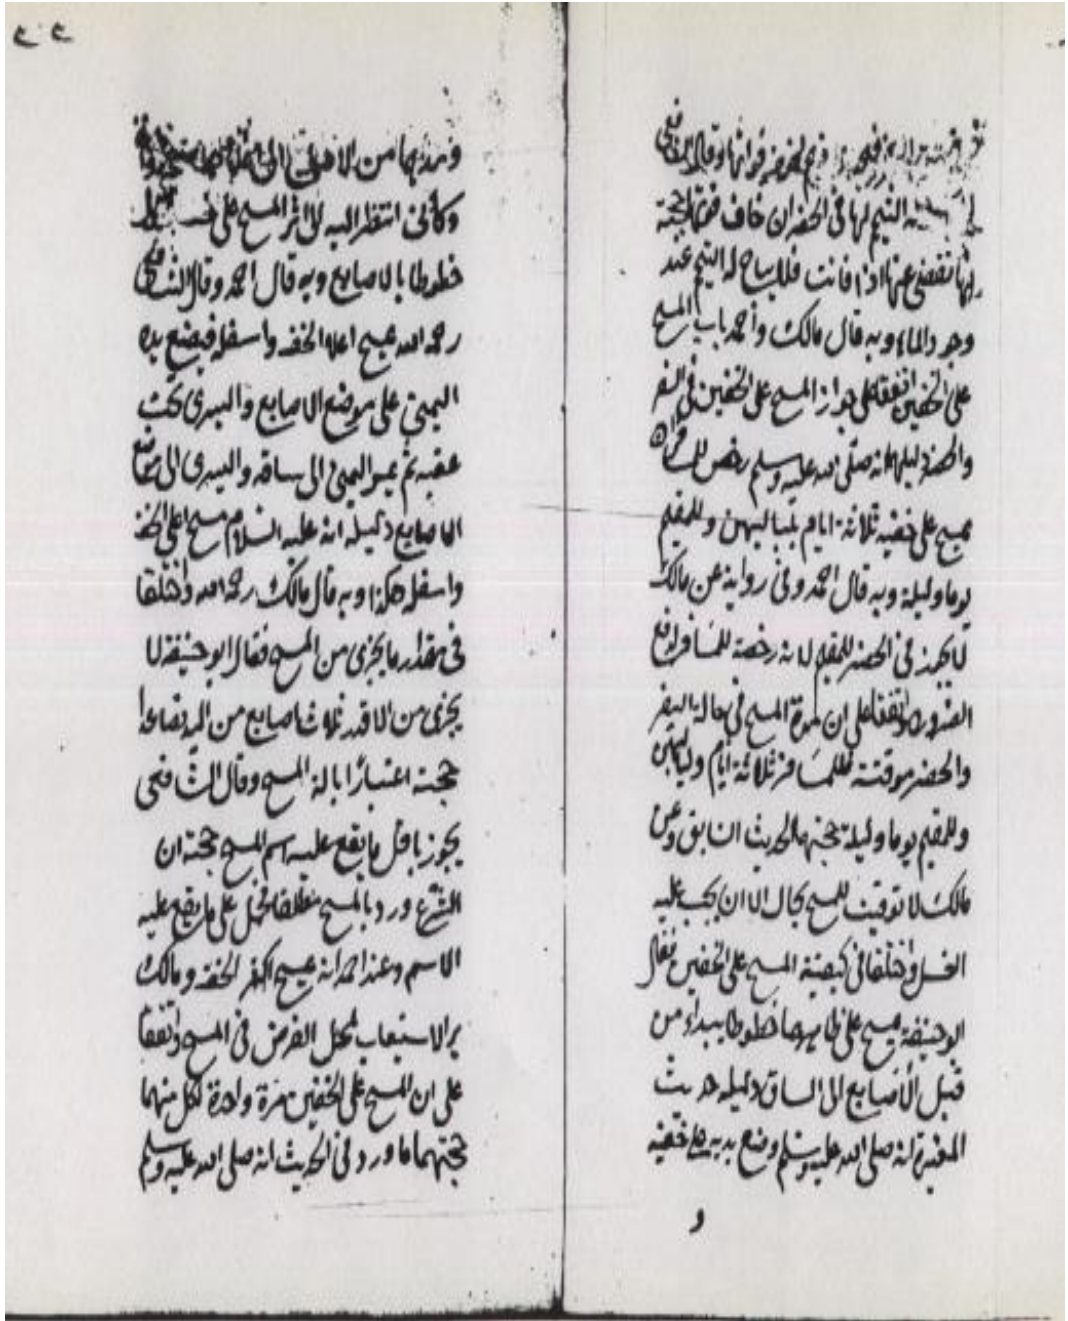 التيمم لها في الحضر ان خاف فوتها حجته
انها تقضى عنها اذا فاتت فلا يباح له التيمم عند
وجود الماء وبه قال مالك وأحمد باب المسح
على الخفين اتفقا على جواز المسح على الخفين في السفر
والحضر دليلهما انه صلى الله عليه وسلم رخص للمسافر ان
يمسح على خفيه ثلاثة ايام بلياليهن وللمقيم
يوما وليلة وبه قال احمد وفي رواية عن مالك
لا يجوز في الحضر للمقيم لانه رخصة للمسافر لدفع
الضرورة واتفقا على ان مدة المسح في حالة السفر
والحضر موقتة فللمسافر ثلاثة ايام ولياليهن
وللمقيم يوما وليلة حجتهما الحديث السابق وعن
مالك لا توقيت للمسح بحال الا ان يجب عليه
الغسل واختلفا في كيفية المسح على الخفين فقال
ابو حنيفة يمسح على ظاهرهما خطوطا يبداء من
قبل الأصابع الى الساق دليله حديث
المغيرة انه صلى الله عليه وسلم وضع يديه على خفيه
و
ومدهما من الاصابع الى
وكأني انتظر اليه الى اثر المسح على
خطوطا بالاصابع وبه قال احمد وقال الشافعي
رحمه الله يمسح اعلا الخف واسفله فيضع يده
اليمنى على موضع الاصابع واليسرى تحت
عقبه ثم يمر اليمنى الى ساقه واليسرى الى موضع
الاصابع دليله انه عليه السلام مسح اعلى الخف
واسفله هكذا وبه قال مالك رحمه الله واختلفا
في مقدار ما يجزى من المسح فقال ابو حنيفة لا
يجزى من الا قدر ثلاث اصابع من اليد فصاعدا
حجته اعتبارًا بالة المسح وقال الشافعي
يجوز باقل ما يقع عليه اسم المسح حجته ان
الشرع ورد بالمسح مطلقا فحمل على ما يقع عليه
الاسم وعند احمد انه يمسح اكثر الخف ومالك
ير الاستيعاب لمحل الفرض في المسح واتفقا
على ان المسح على الخفين مرة واحدة لكل منهما
حجتهما ما ورد في الحديث انه صلى الله عليه وسلم